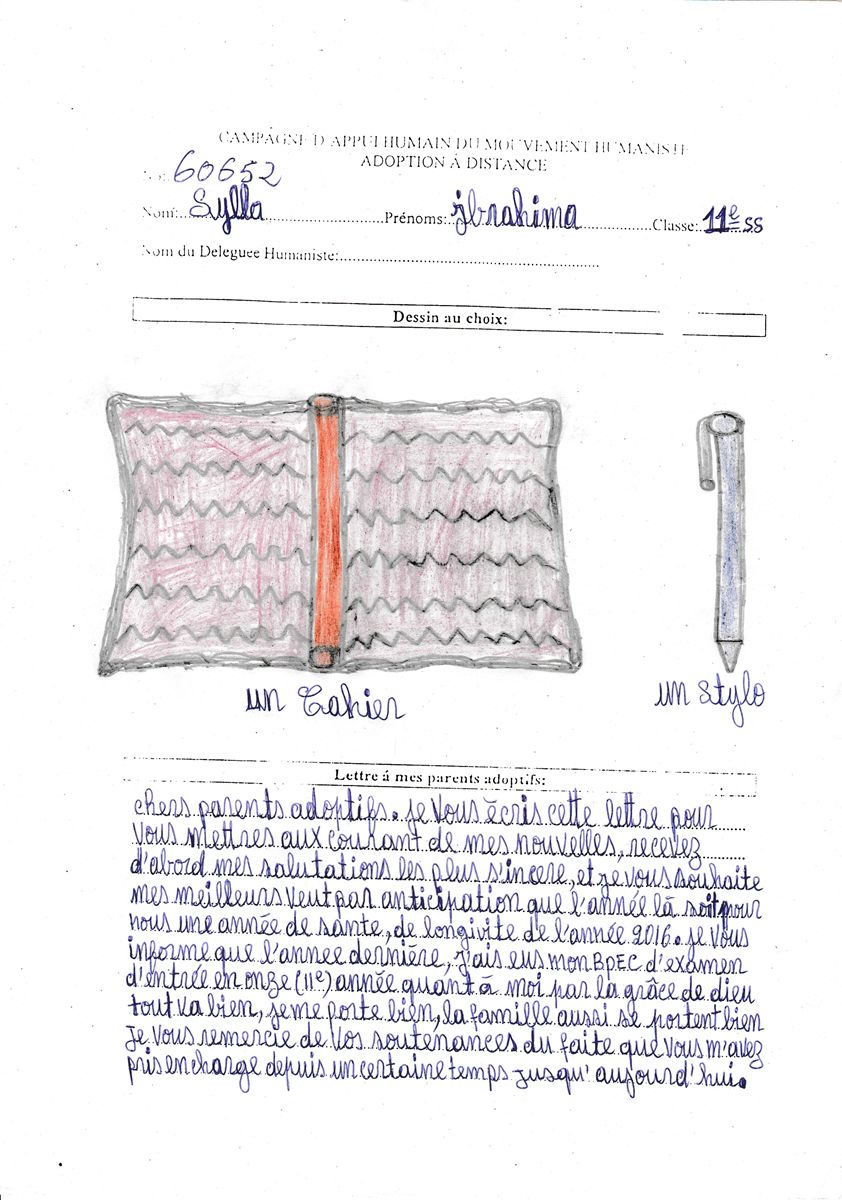 CAMPAGNE D'APPUI HUMAIN DU MOUVEMENT HUMANISTE
ADOPTION Á DISTANCE
No: 60652
Nom: Sylla Prénoms: ibrahima Classe: 11e ss
Nom du Deleguee Humaniste:
Dessin au choix:
un Cahier
un Stylo
Lettre á mes parents adoptifs:
chers parents adoptifs. je vous écris cette lettre pour
vous mettres aux courant de mes nouvelles, recevez
d'abord mes salutations les plus s'incere, et je vous souhaite
mes meilleurs veut par anticipation que l'année là soit pour
nous une année de sante, de longivite de l'année 2016. je vous
informe que l'annee derniére, j'ais eus mon BPEC d'examen
d'entrée en onze (11e) année quant à moi par la grâce de dieu
tout va bien, je me porte bien, la famille aussi se portent bien
je vous remercie de vos soutenances du faite que vous m'avez
pris en charge depuis un certaine temps jusqu'aujourd'hui.